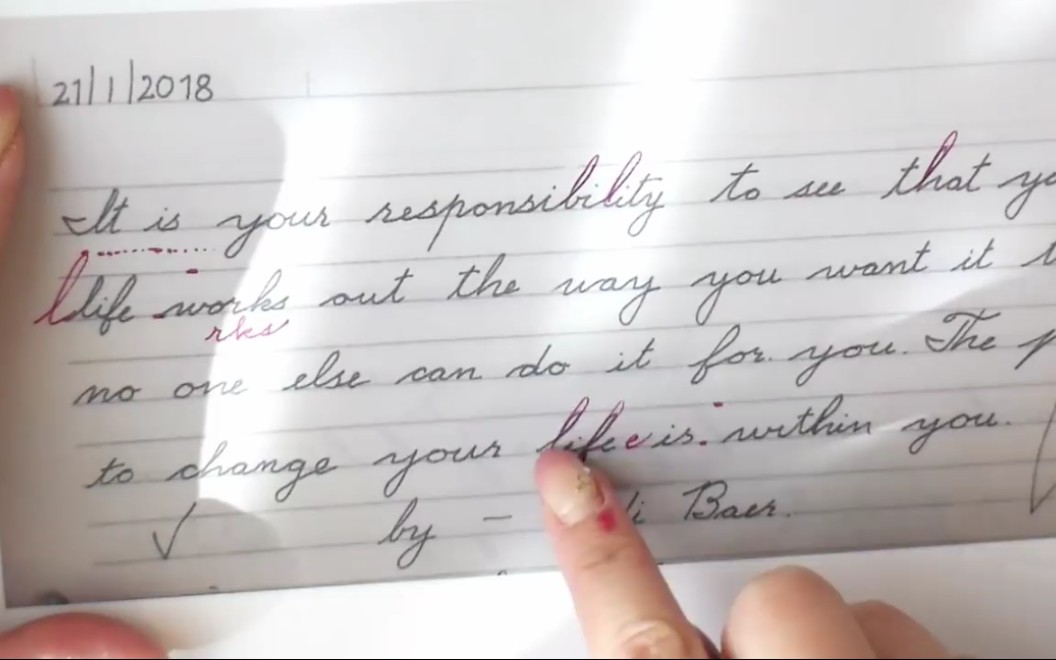 21/1/2018
It is your responsibility to see that
life works out the way you want it
rks
no one else can do it for you. The
to change your life is within you.
by - Baer.